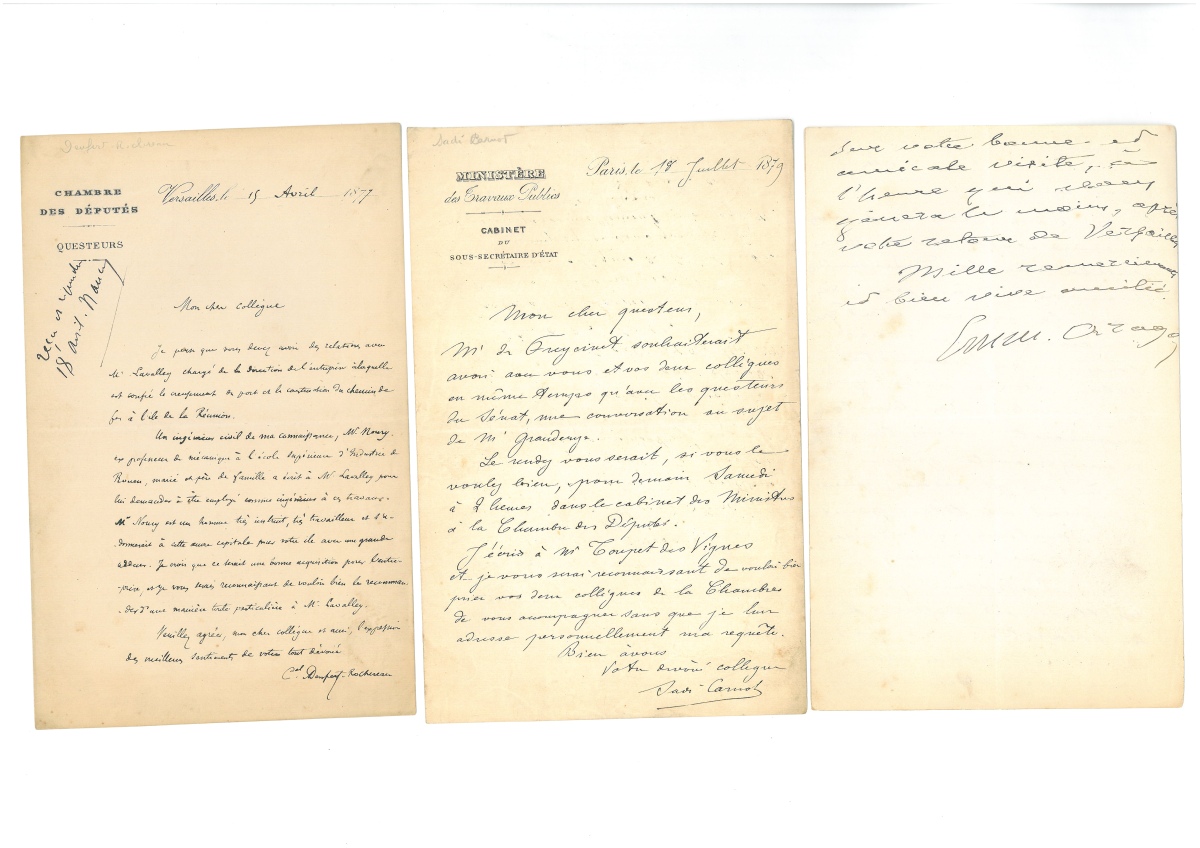 Denfert Rochereau
CHAMBRE
DES DÉPUTÉS
QUESTEURS
Versailles, le 15 Avril 1877
18 avril. Nancy
Mon cher collègue
Je pense que vous devez avoir des relations avec
Mr Lavalley chargé de la direction de l'entreprise à laquelle
est confié le creusement du port et la construction du chemin de
fer à l'île de la Réunion.
Un ingénieur civil de ma connaissance, Mr. Noury,
ex professeur de mécanique à l'école supérieure d'Industrie de
Rouen, marié et père de famille a écrit à Mr Lavalley pour
lui demander à être employé comme ingénieur à ces travaux.
Mr Noury est un homme très instruit, très travailleur et s'a-
donnerait à cette œuvre capitale pour votre île avec une grande
ardeur. Je crois que ce serait une bonne acquisition pour l'entre-
prise, et je vous serais reconnaissant de vouloir bien le recomman-
der d'une manière toute particulière à Mr. Lavalley.
Veuillez agréer, mon cher collègue et ami, l'expression
des meilleurs sentiments de votre tout dévoué
Cel Denfert-Rochereau
Sadi Carnot
MINISTÈRE
des Travaux Publics
CABINET
DU
SOUS-SECRÉTAIRE D'ÉTAT
Paris, le 18 Juillet 1879
Mon cher questeur,
Mr de Freycinet souhaiterait
avoir avec vous et vos deux collègues
en même temps qu'avec les questeurs
du Sénat, une conversation au sujet
de Mr
Le rendez vous serait, si vous le
voulez bien, pour demain Samedi
à 2 heures dans le cabinet des Ministres
à la Chambre des Députés.
J'écris à Mr Toupet des Vignes
et je vous serai reconnaissant de vouloir bien
prier vos deux collègues de la Chambre
de vous accompagner sans que je leur
adresse personnellement ma requête.
Bien à vous
Votre dévoué collègue
Sadi Carnot
sur votre bonne et
amicale visite, à
l'heure qui vous
gênera le moins, après
votre retour de Versailles
Mille remerciements
et bien vive amitié.
Emm. Arago